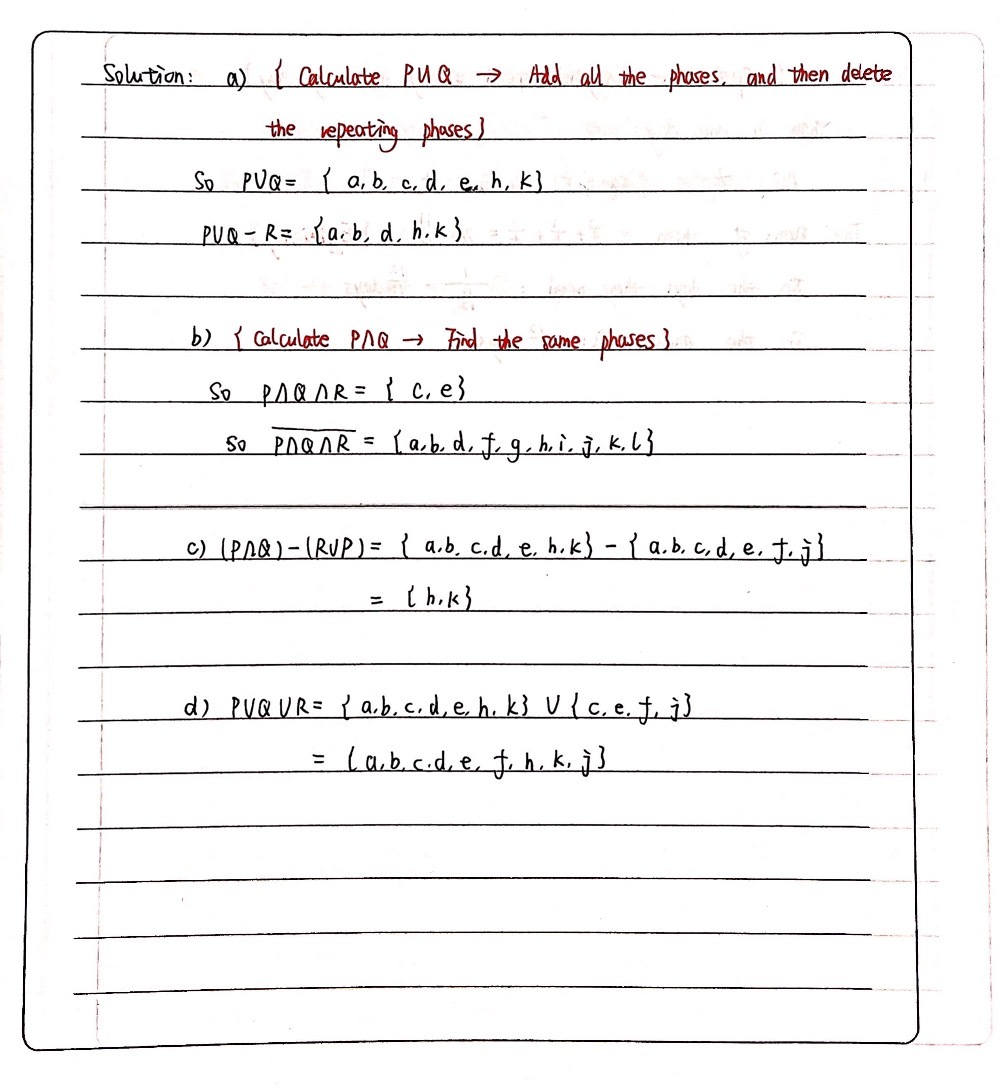 Solution: a) { Calculate P∪Q → Add all the phases, and then delete
the repeating phases}
So P∪Q= { a, b, c, d, e, h, k}
P∪Q - R= {a, b, d, h, k}
b) { Calculate P∩Q → Find the same phases}
So P∩Q∩R = { c, e}
So \overline{P∩Q∩R} = {a, b, d, f, g, h, i, j, k, l}
c) (P∩Q)-(R∪P)= { a, b, c, d, e, h, k} - { a, b, c, d, e, f, j}
= { h, k}
d) P∪Q∪R= { a, b, c, d, e, h, k} ∪ { c, e, f, j}
= {a, b, c, d, e, f, h, k, j}